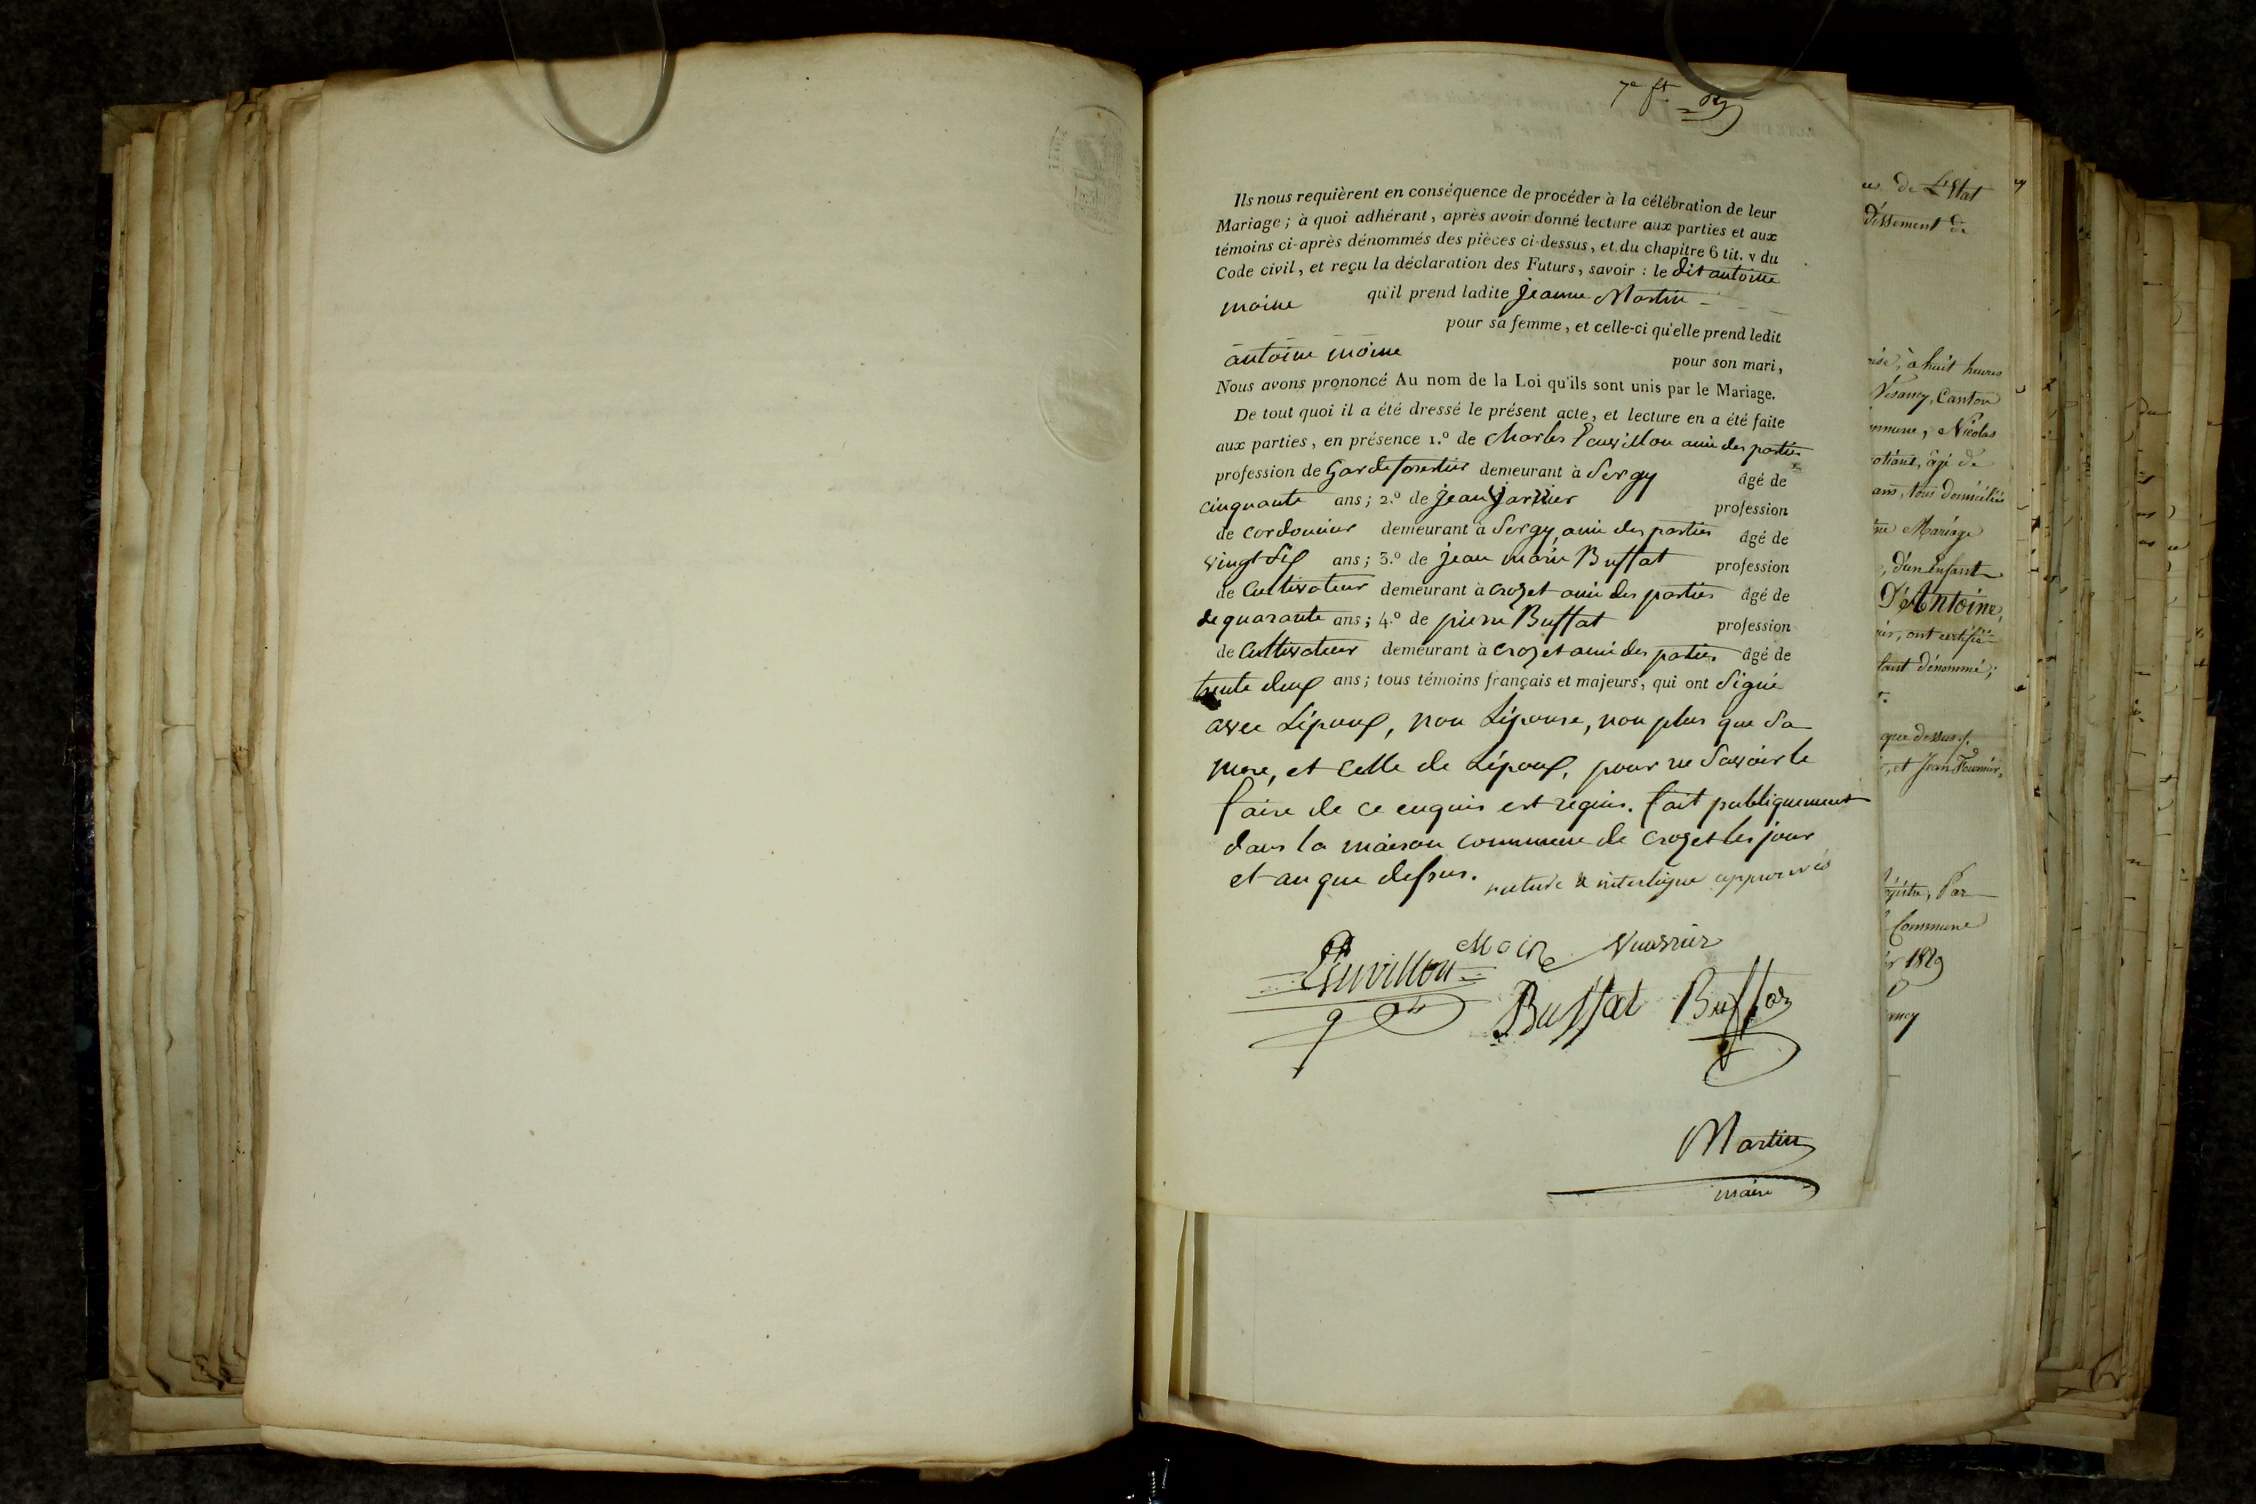 7e ft.
Ils nous requièrent en conséquence de procéder à la célébration de leur
Mariage; à quoi adhérant, après avoir donné lecture aux parties et aux
témoins ci-après dénommés des pièces ci-dessus, et du chapitre 6 tit. v du
Code civil, et reçu la déclaration des Futurs, savoir : le dit antoine
moine qu'il prend ladite jeanne Martin
pour sa femme, et celle-ci qu'elle prend ledit
antoine moine pour son mari,
Nous avons prononcé Au nom de la Loi qu'ils sont unis par le Mariage.
De tout quoi il a été dressé le présent acte, et lecture en a été faite
aux parties, en présence 1.º de charles ami des parties
profession de Garde forestier demeurant à Sergy âgé de
cinquante ans; 2.º de jean profession
de cordonnier demeurant à Sergy, ami des parties âgé de
vingt six ans; 3.º de jean marie Buffat profession
de Cultivateur demeurant à crozet ami des parties âgé de
de quarante ans; 4.º de pierre Buffat profession
de Cultivateur demeurant à crozet ami des parties âgé de
trente deux ans; tous témoins français et majeurs, qui ont signé
avec Lépoux, non Lépouse, non plus que sa
mere, et celle de Lépoux, pour ne savoir le
faire de ce enquis est requis. fait publiquement
dans la maison commune de crozet les jour
et an que dessus. rature & interligne approuvés
Moine
Buffat Buffat
Martin
maire
de L'Etat
à huit heures
Vesancy, Canton
Nicolas
âgé de
ans, tous domiciliés
Mariage
, d'un Enfant
D'Antoine,
, ont certifié
dénommé;
que dessus.
, et Jean Fournier,
, Par
Commune
1829